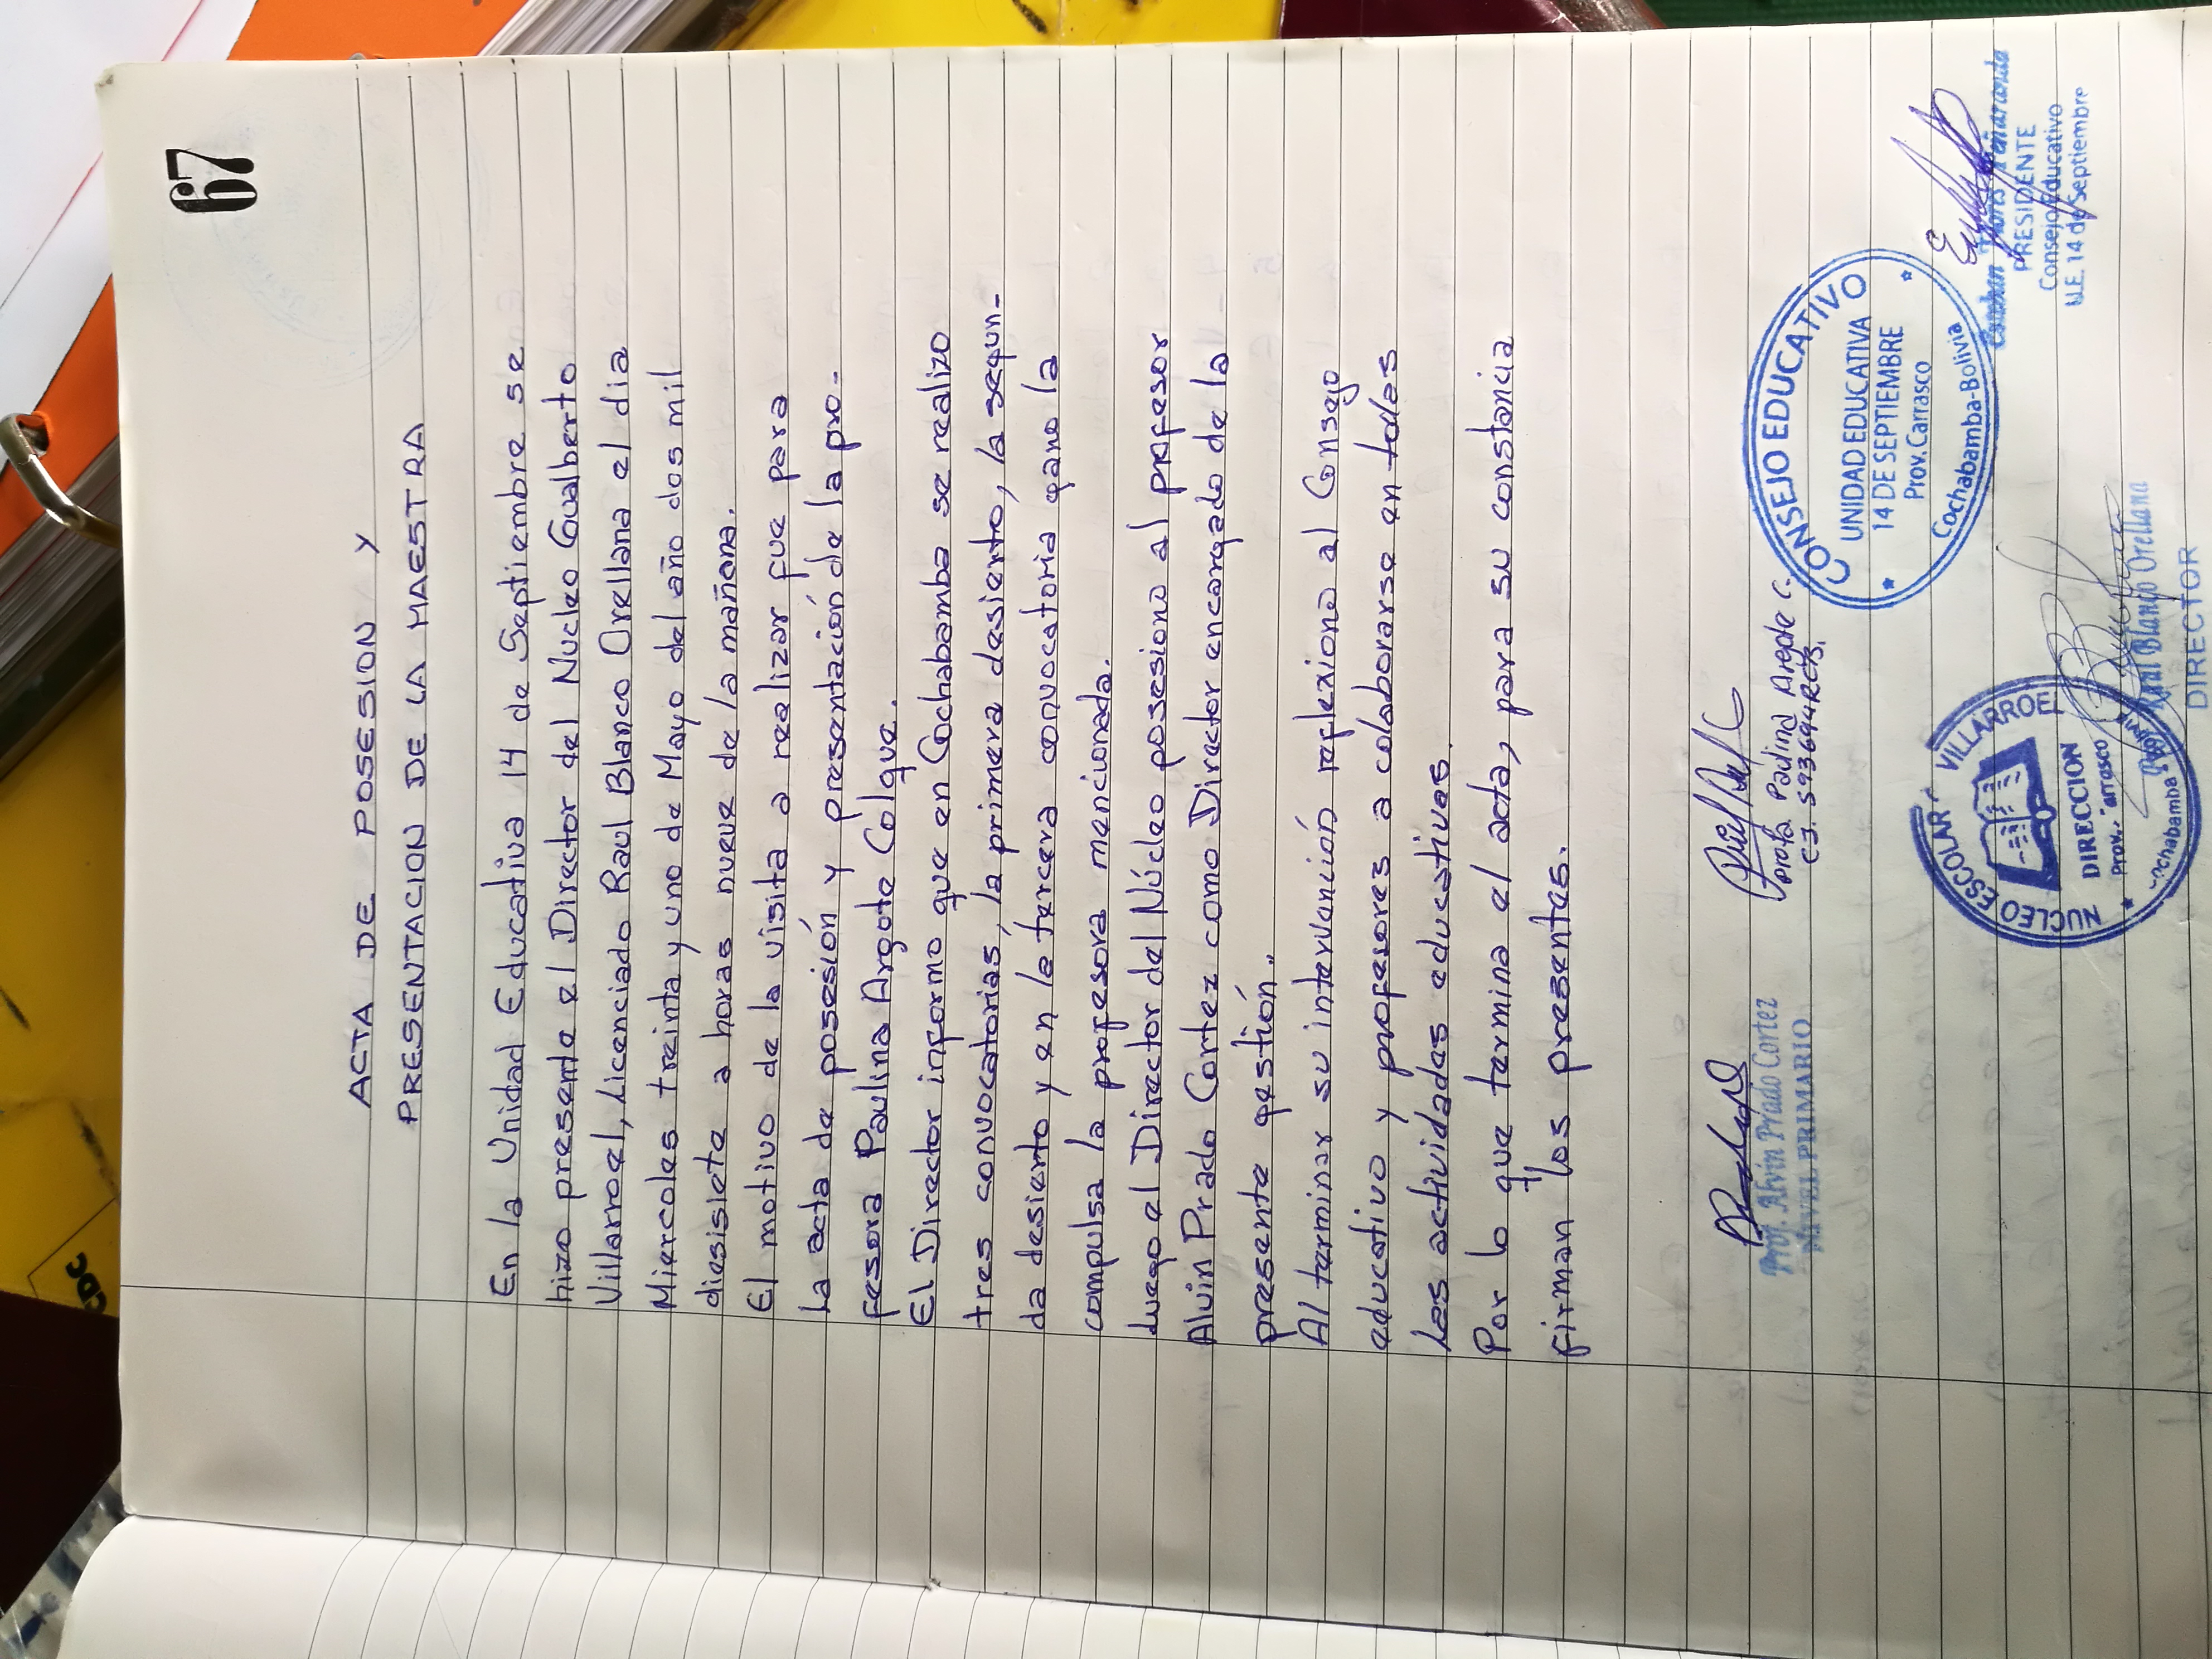 67
ACTA DE POSESION Y
PRESENTACION DE LA MAESTRA
En la Unidad Educativa 14 de Septiembre se
hizo presente el Director del Nucleo Gualberto
Villarroel, Licenciado Raul Blanco Orellana el dia
Miercoles treinta y uno de Mayo del año dos mil
diesisiete a horas nueve de la mañana.
El motivo de la visita a realizar fue para
la acta de posesión y presentación de la pro-
fesora Paulina Argote Colque.
El Director informo que en Cochabamba se realizo
tres convocatorias, la primera desierto, la segun-
da desierto y en la tercera convocatoria gano la
compulsa la profesora mencionada.
Luego el Director del Núcleo posesiono al profesor
Alvin Prado Cortez como Director encargado de la
presente gestión.,
Al terminar su intervención reflexiono al Consejo
educativo y profesores a colaborarse en todas
las actividades educativas.
Por lo que termina el acta, para su constancia
firman los presentes.
Prof. Alvin Prado Cortez
NIVEL PRIMARIO
Profa. Paulina Argote C.
CONSEJO EDUCATIVO
UNIDAD EDUCATIVA
14 DE SEPTIEMBRE
Prov. Carrasco
Cochabamba-Bolivia
PRESIDENTE
Consejo Educativo
U.E. 14 de Septiembre
NUCLEO ESCOLAR VILLARROEL
DIRECCION
Prov. Carrasco
Cochabamba
Raul Blanco Orellana
DIRECTOR
CDC